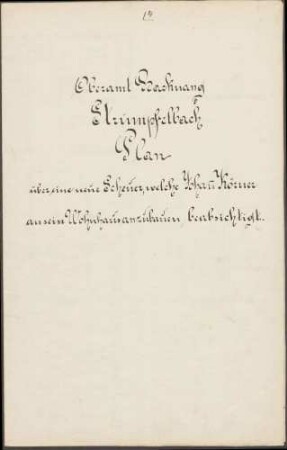 19
Oberamt Backnang
Strümpfelbach
Plan
über eine neue Scheuer, welche Johan Körner
an sein Wohnhaus anzubauen beabsichtigt.